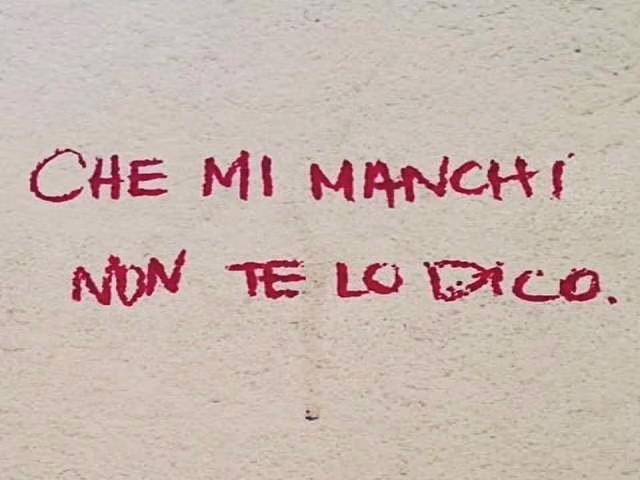 CHE MI MANCHI
NON TE LO DICO.